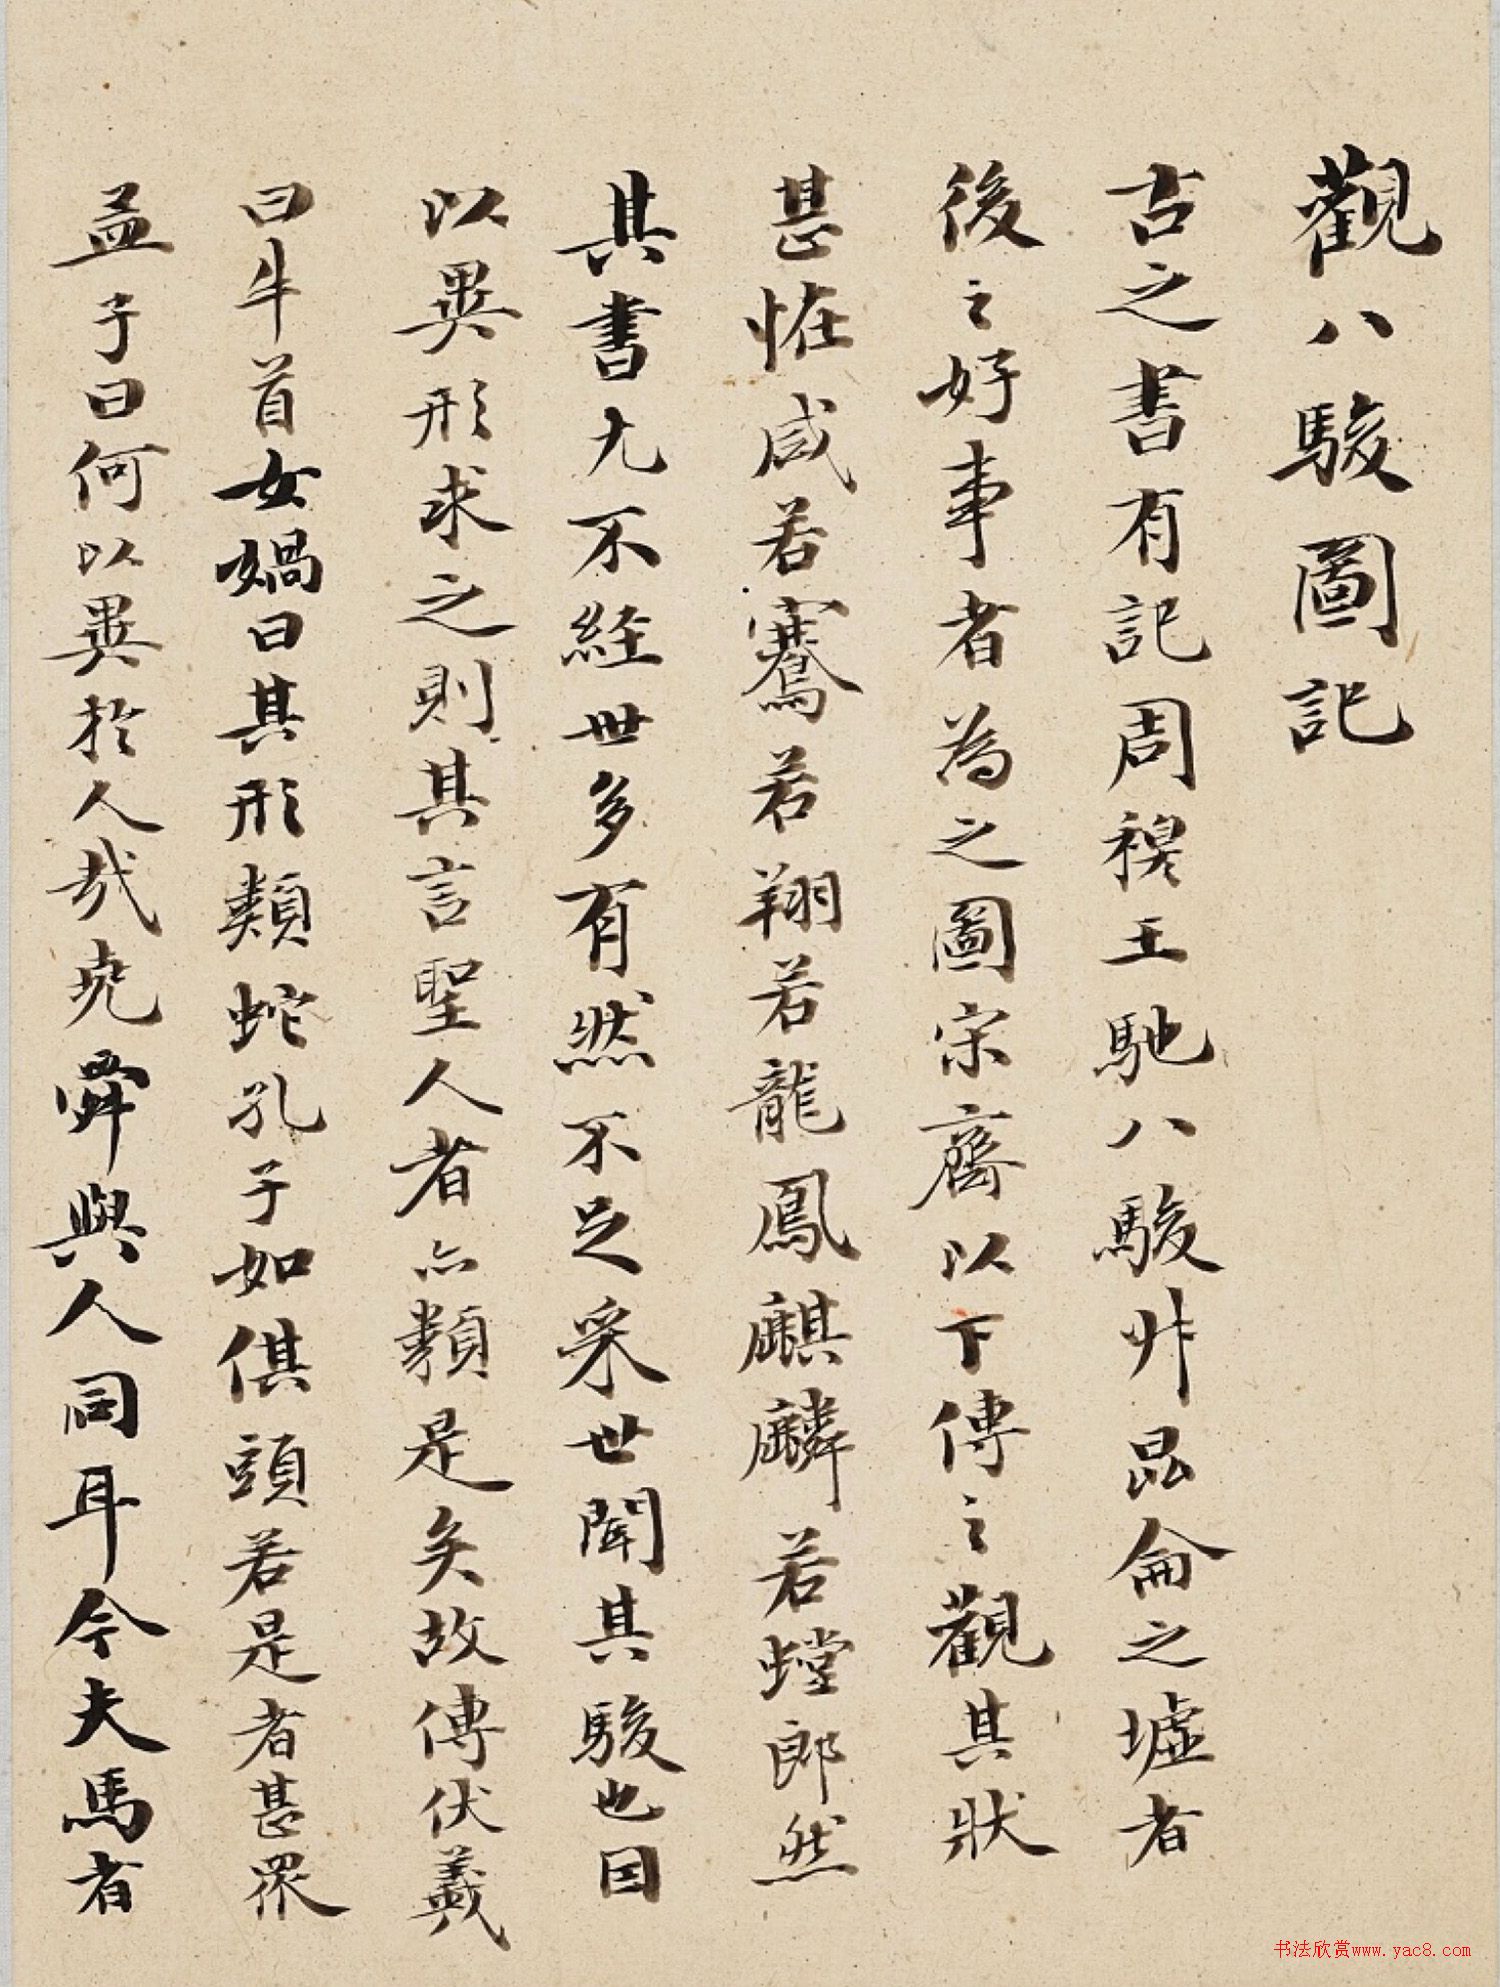 觀八駿圖記
古之書有記周穆王馳八駿升昆侖之墟者
後之好事者為之圖宋齊以下傳之觀其狀
甚怪咸若騫若翔若龍鳳麒麟若螳郎然
其書尤不經世多有然不足采世聞其駿也因
以異形求之則其言聖人者亦類是矣故傳伏羲
曰牛首女媧曰其形類蛇孔子如倛頭若是者甚衆
孟子曰何以異於人哉堯舜與人同耳今夫馬者
书法欣赏www.yac8.com